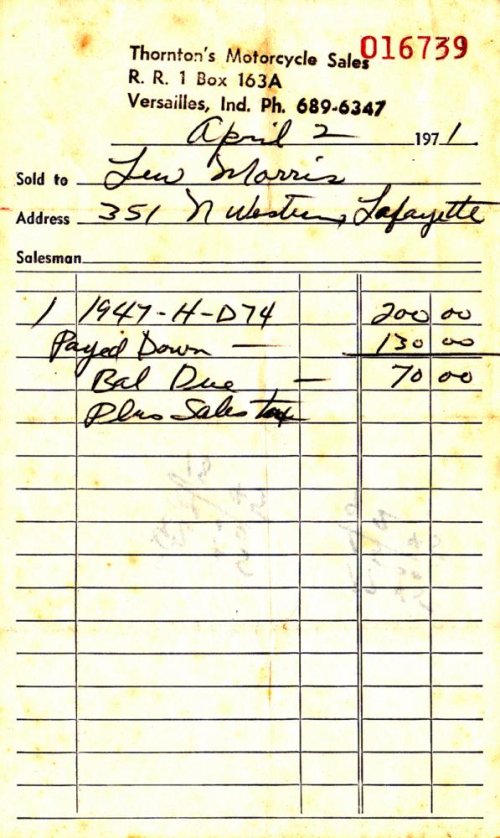 Thornton's Motorcycle Sales 016739
R. R. 1 Box 163A
Versailles, Ind. Ph. 689-6347
April 2 1971
Sold to Lew Morris
Address 351 N Western, Lafayette
Salesman
1 1947-H-D74 200 00
Payed Down — 130 00
Bal Due — 70 00
Plus Sales tax